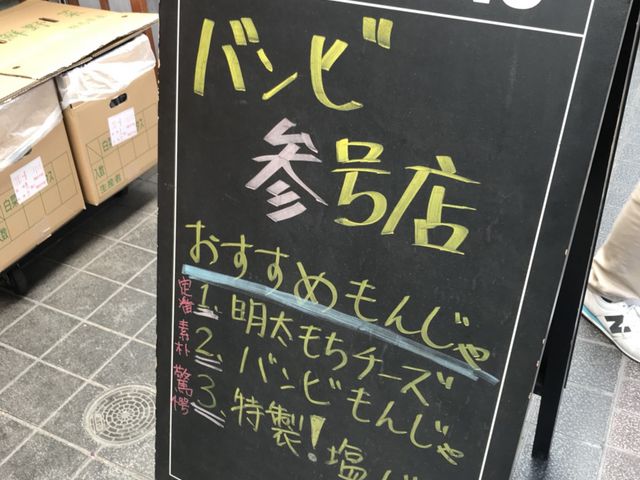 バンビ
参号店
おすすめもんじゃ
定番 1. 明太もちチーズ
素朴 2. バンビもんじゃ
驚愕 3. 特製!塩
入数
生産者
入数
N